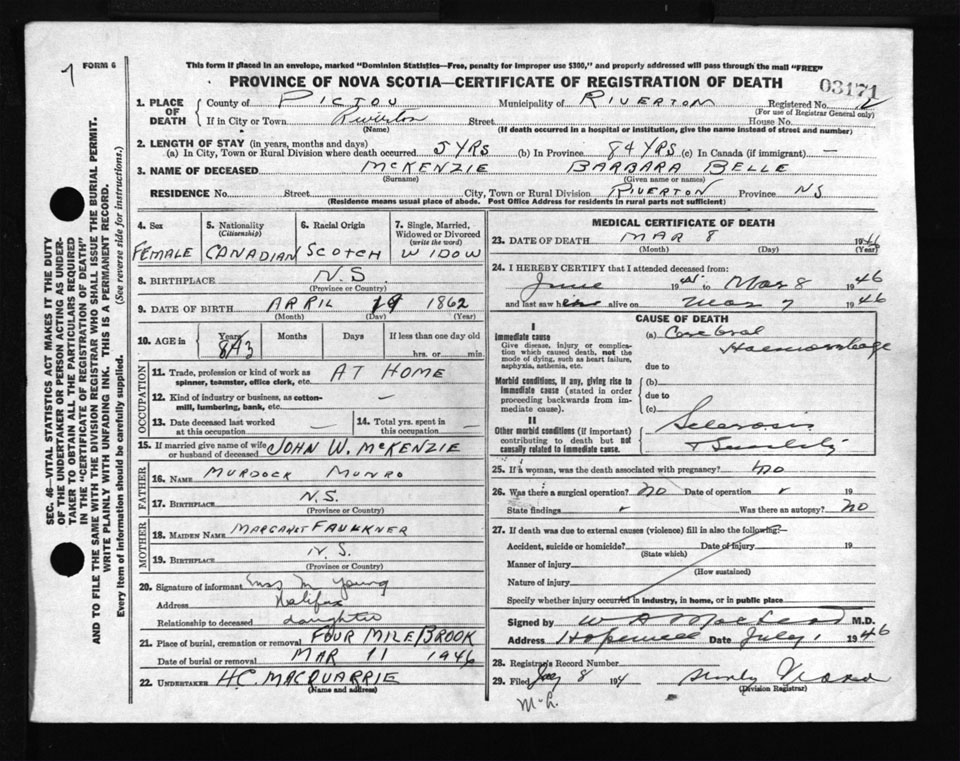 7
FORM 6
This form if placed in an envelope, marked "Dominion Statistics—Free, penalty for improper use $300," and properly addressed will pass through the mail "FREE"
PROVINCE OF NOVA SCOTIA—CERTIFICATE OF REGISTRATION OF DEATH
03171
SEC. 46—VITAL STATISTICS ACT MAKES IT THE DUTY
OF THE UNDERTAKER OR PERSON ACTING AS UNDER-
TAKER TO OBTAIN ALL THE PARTICULARS REQUIRED
IN THE "CERTIFICATE OF REGISTRATION OF DEATH"
AND TO FILE THE SAME WITH THE DIVISION REGISTRAR WHO SHALL ISSUE THE BURIAL PERMIT.
WRITE PLAINLY WITH UNFADING INK. THIS IS A PERMANENT RECORD.
Every item of information should be carefully supplied. (See reverse side for instructions.)
1. PLACE OF DEATH County of PICTOU Municipality of RIVERTON Registered No. 12
(For use of Registrar General only)
If in City or Town Riverton Street House No.
(Name) (If death occurred in a hospital or institution, give the name instead of street and number)
2. LENGTH OF STAY (in years, months and days)
(a) In City, Town or Rural Division where death occurred 5 YRS (b) In Province 84 YRS (c) In Canada (if immigrant) —
3. NAME OF DECEASED McKENZIE BARBARA BELLE
(Surname) (Given name or names)
RESIDENCE No. Street City, Town or Rural Division RIVERTON Province NS
(Residence means usual place of abode. Post Office Address for residents in rural parts not sufficient)
4. Sex FEMALE
5. Nationality (Citizenship) CANADIAN
6. Racial Origin SCOTCH
7. Single, Married, Widowed or Divorced (write the word) WIDOW
8. BIRTHPLACE N.S.
(Province or Country)
9. DATE OF BIRTH APRIL 19 1862
(Month) (Day) (Year)
10. AGE in Years 83 Months Days If less than one day old
hrs. or min.
OCCUPATION
11. Trade, profession or kind of work as spinner, teamster, office clerk, etc. AT HOME
12. Kind of industry or business, as cotton-mill, lumbering, bank, etc. —
13. Date deceased last worked at this occupation —
14. Total yrs. spent in this occupation —
15. If married give name of wife or husband of deceased JOHN W. McKENZIE
FATHER
16. NAME MURDOCK MUNRO
17. BIRTHPLACE N.S.
(Province or Country)
MOTHER
18. MAIDEN NAME MARGARET FAULKNER
19. BIRTHPLACE N.S.
(Province or Country)
20. Signature of informant M Young
Address Halifax
Relationship to deceased daughter
21. Place of burial, cremation or removal FOUR MILE BROOK
Date of burial or removal MAR 11 1946
22. UNDERTAKER H.C. MACQUARRIE
(Name and address)
MEDICAL CERTIFICATE OF DEATH
23. DATE OF DEATH MAR 8 1946
(Month) (Day) (Year)
24. I HEREBY CERTIFY that I attended deceased from:
June 19 to Mar 8 1946
and last saw her alive on Mar 7 1946
CAUSE OF DEATH
I
Immediate cause
Give disease, injury or complication which caused death, not the mode of dying, such as heart failure, asphyxia, asthenia, etc.
(a) Cerebral Haemorrhage
due to
Morbid conditions, if any, giving rise to immediate cause (stated in order proceeding backwards from immediate cause).
(b)
due to
(c)
II
Other morbid conditions (if important) contributing to death but not causally related to immediate cause.
Sclerosis
+ Senility
25. If a woman, was the death associated with pregnancy? No
26. Was there a surgical operation? No Date of operation 19
State findings Was there an autopsy? No
27. If death was due to external causes (violence) fill in also the following:—
Accident, suicide or homicide? Date of injury 19
(State which)
Manner of injury
(How sustained)
Nature of injury
Specify whether injury occurred in industry, in home, or in public place
Signed by W A MacLeod M.D.
Address Hopewell Date July 1 1946
28. Registrar's Record Number
29. Filed July 8 194
(Division Registrar)